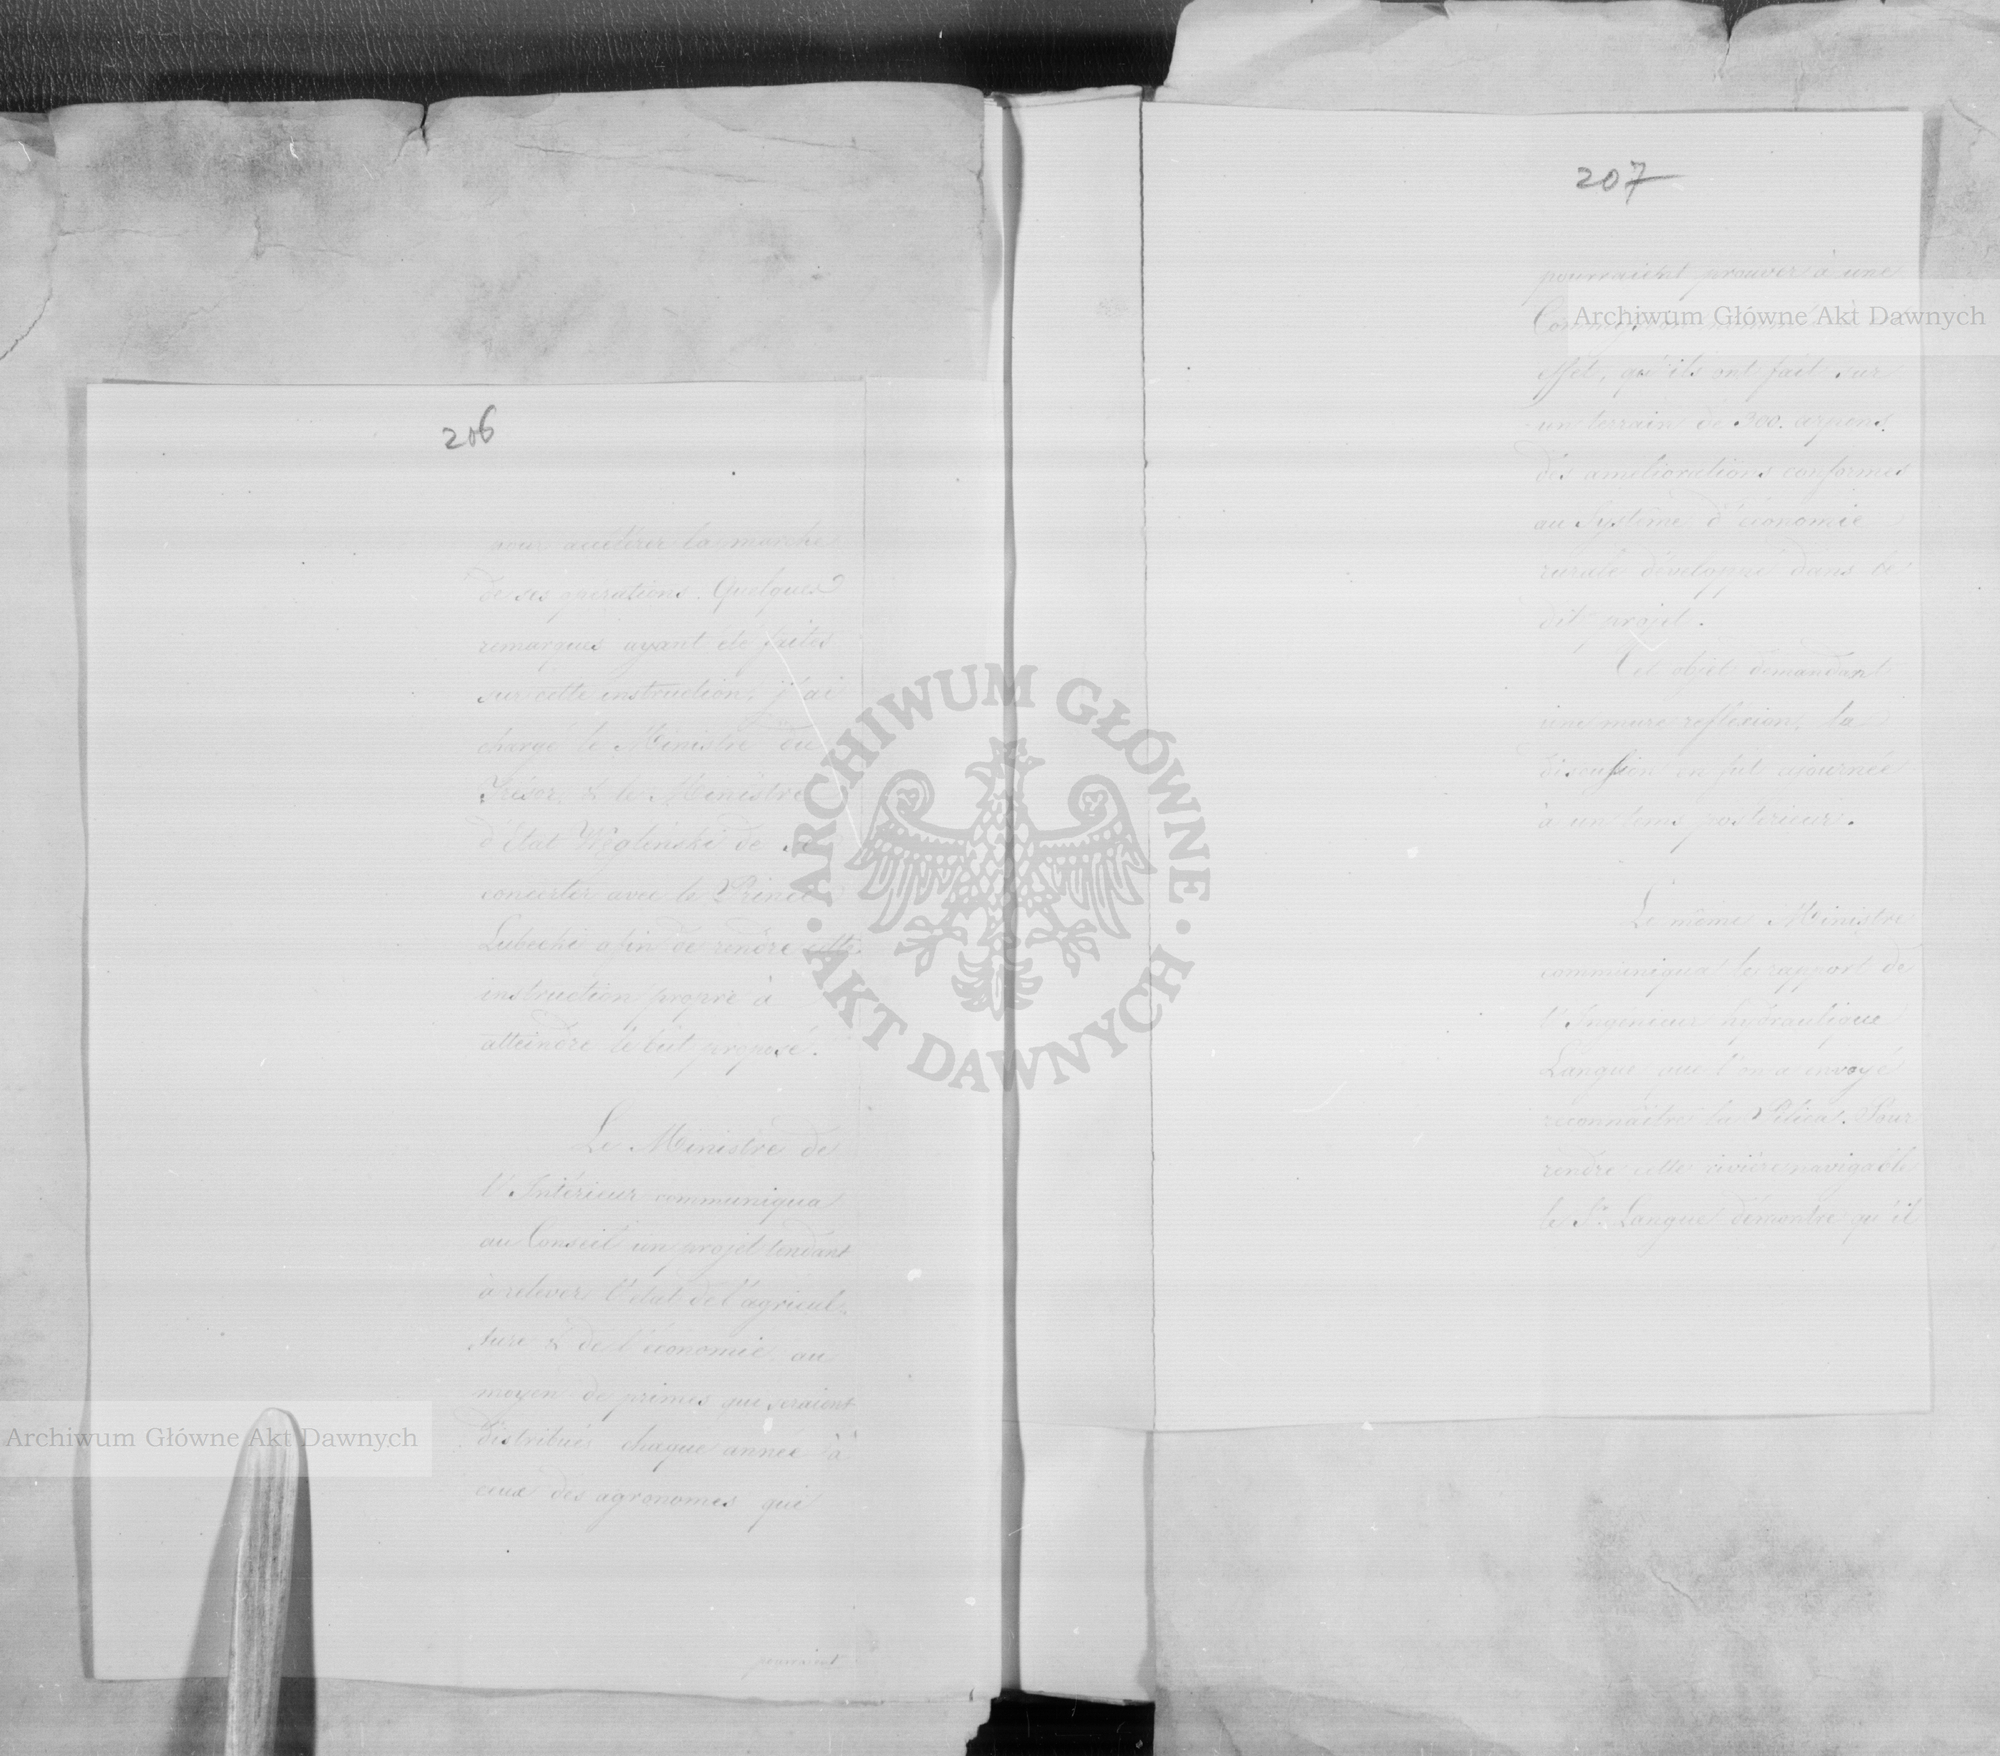 206
pour accélérer la marche
de ses opérations. Quelques
remarques ayant été faites
sur cette instruction, j'ai
chargé le Ministre du
Trésor, & le Ministre
d'Etat Węglenski de se
concerter avec le Prince
Lubecki afin de rendre cette
instruction propre à
atteindre le but proposé.
Le Ministre de
l'Intérieur communiqua
au Conseil un projet tendant
à relever l'etat de l'agricul-
ture & de l'économie au
moyen de primes qui seraient
distribués chaque année à
ceux des agronomes qui
pourraient
207
pourraient prouver à une
effet, qu'ils ont fait sur
un terrain de 300. arpens.
des améliorations conformes
au Système d'économie
rurale développé dans le
dit projet.
Cet objet demandant
une mure reflexion, la
discussion en fut ajournée
à un tems postérieur.
Le même Ministre
communiqua le rapport de
l'Ingenieur hydraulique
Langue que l'on a envoyé
reconnaître la Pilica. Pour
rendre cette rivière navigable
le Sr. Langue démontre qu'il
Archiwum Główne Akt Dawnych
Archiwum Główne Akt Dawnych
ARCHIWUM GŁÓWNE
AKT DAWNYCH